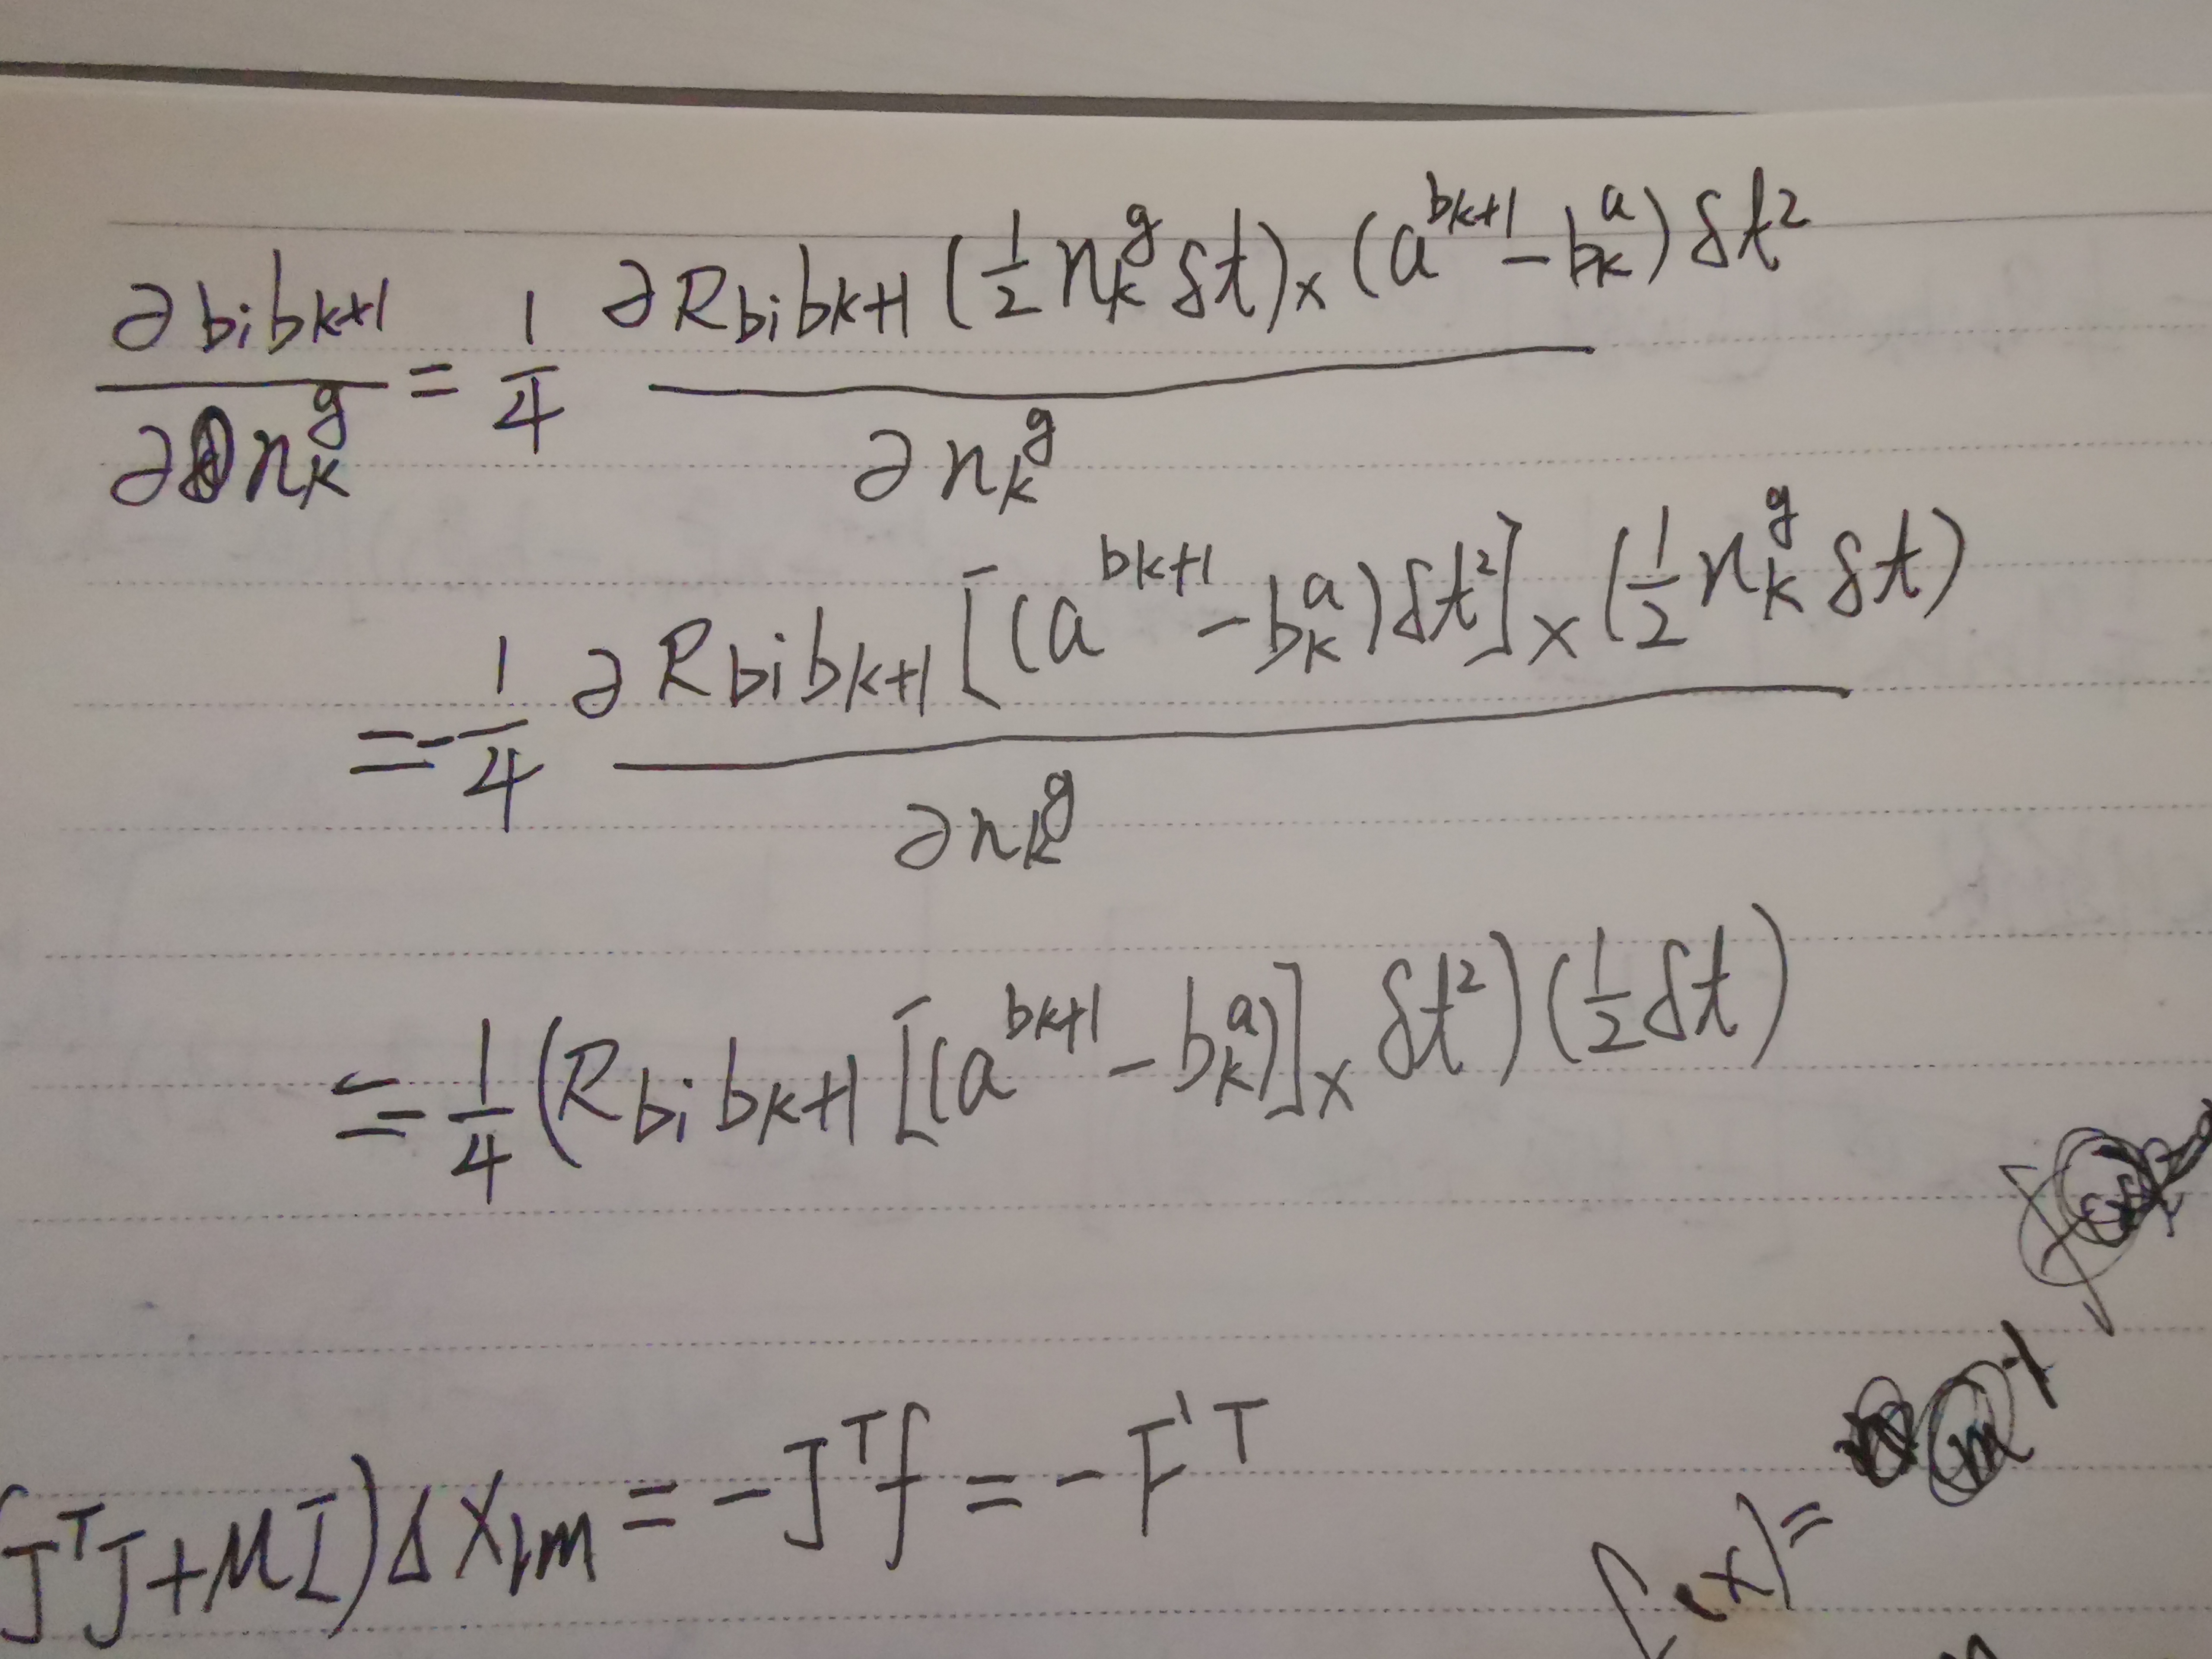 ∂bibk+1 / ∂n_k^g = 1/4 ∂R_bibk+1 (1/2 n_k^g δt)_× (a^bk+1 − b_k^a) δt² / ∂n_k^g
= −1/4 ∂R_bibk+1 [(a^bk+1 − b_k^a) δt²]_× (1/2 n_k^g δt) / ∂n_k^g
= 1/4 (R_bibk+1 [(a^bk+1 − b_k^a)]_× δt²) (1/2 δt)
(J^T J + μI) Δx_lm = −J^T f = −F'^T